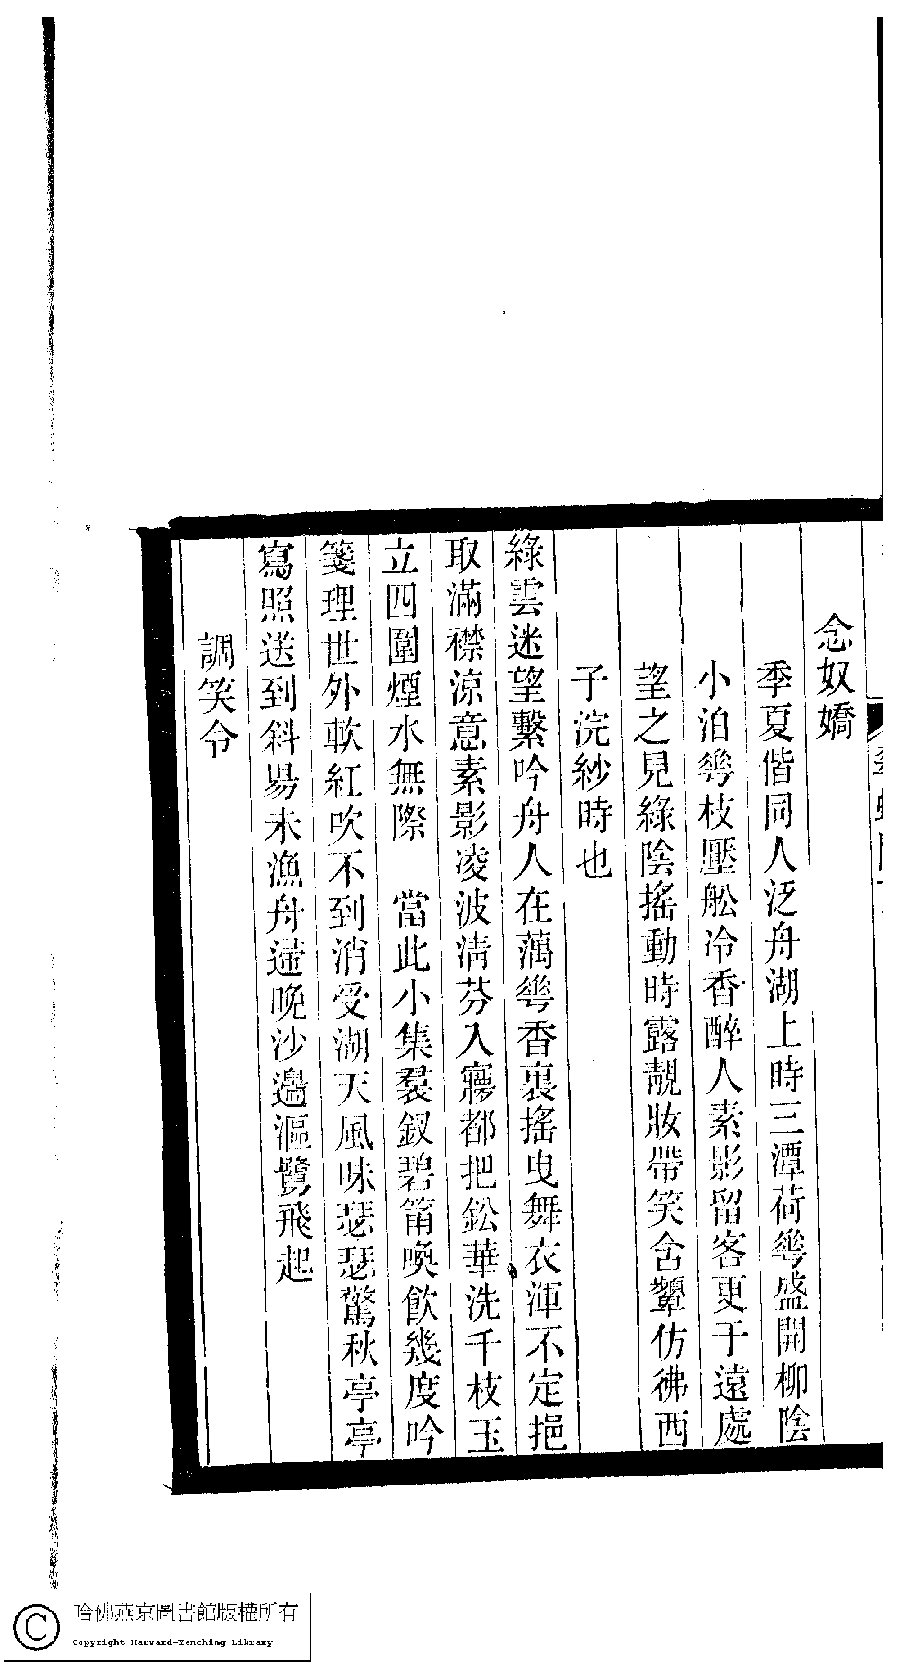 念奴嬌
季夏偕同人泛舟湖上時三潭荷䔢盛開柳陰
小泊䔢枝壓舩冷香醉人素影留客更于遠處
望之見綠陰搖動時露靚妝帶笑含顰仿彿西
子浣紗時也
綠雲迷望繫吟舟人在藕䔢香裏搖曳舞衣渾不定挹
取滿襟涼意素影凌波淸芬入寱都把鈆華洗千枝玉
立四圍煙水無際　當此小集羣釵碧筩喚飲幾度吟
箋理世外軟紅吹不到消受湖天風味瑟瑟驚秋亭亭
寫照送到斜昜未漁舟遠晚沙邊漚鷺飛起
調笑令
哈佛燕京圖書館版權所有
Copyright Harvard-Yenching Library